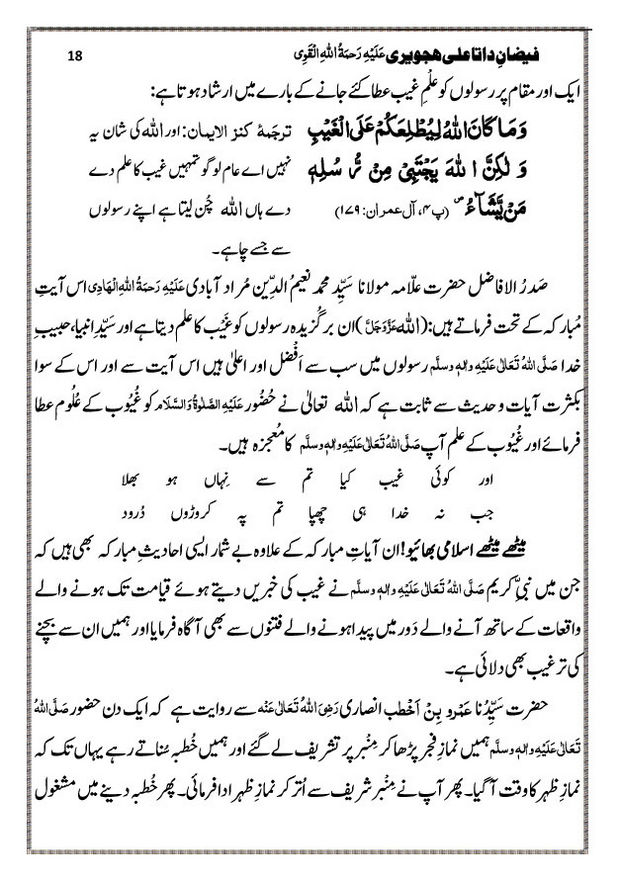 فیضانِ داتا علی ہجویری عَلَیْہِ رَحمَۃُ اللّٰہِ الْقَوِی 18
ایک اور مقام پر رسولوں کو علمِ غیب عطا کئے جانے کے بارے میں ارشاد ہوتا ہے:
وَمَا کَانَ اللّٰہُ لِیُطْلِعَکُمْ عَلَی الْغَیْبِ ترجمۂ کنز الایمان: اور اللہ کی شان یہ
وَ لٰکِنَّ اللّٰہَ یَجْتَبِیْ مِنْ رُّسُلِہٖ نہیں اے عام لوگو تمہیں غیب کا علم دے
مَنْ یَّشَآءُ ۪ (پ۴، آل عمران: ۱۷۹) دے ہاں اللہ چُن لیتا ہے اپنے رسولوں
سے جسے چاہے۔
صَدرُ الافاضل حضرت علّامہ مولانا سَیِّد محمد نعیمُ الدِّین مُراد آبادی عَلَیْہِ رَحمَۃُ اللّٰہِ الْہَادِی اس آیتِ
مُبارکہ کے تحت فرماتے ہیں: (اللہ عَزَّوَجَلَّ) ان برگُزیدہ رسولوں کو غَیْب کا علم دیتا ہے اور سَیِّدِ انبیا، حبیبِ
خدا صَلَّی اللّٰہُ تَعَالٰی عَلَیْہِ واٰلِہٖ وسلَّم رسولوں میں سب سے اَفْضل اور اعلیٰ ہیں اس آیت سے اور اس کے سوا
بکثرت آیات و حدیث سے ثابت ہے کہ اللہ تعالیٰ نے حُضُور عَلَیْہِ الصَّلٰوۃُ وَالسَّلَام کو غُیُوب کے عُلُوم عطا
فرمائے اور غُیُوب کے علم آپ صَلَّی اللّٰہُ تَعَالٰی عَلَیْہِ واٰلِہٖ وسلَّم کا مُعجزہ ہیں۔
اور کوئی غیب کیا تم سے نِہاں ہو بھلا
جب نہ خدا ہی چھپا تم پہ کروڑوں دُرود
میٹھے میٹھے اسلامی بھائیو! ان آیاتِ مبارکہ کے علاوہ بے شمار ایسی احادیثِ مبارکہ بھی ہیں کہ
جن میں نبیِّ کریم صَلَّی اللّٰہُ تَعَالٰی عَلَیْہِ واٰلِہٖ وسلَّم نے غیب کی خبریں دیتے ہوئے قیامت تک ہونے والے
واقعات کے ساتھ آنے والے دَور میں پیدا ہونے والے فتنوں سے بھی آگاہ فرمایا اور ہمیں ان سے بچنے
کی ترغیب بھی دلائی ہے۔
حضرت سَیِّدُنا عَمرو بِنْ اَخْطَب انصاری رَضِیَ اللّٰہُ تَعَالٰی عَنْہ سے روایت ہے کہ ایک دن حضور صَلَّی اللّٰہُ
تَعَالٰی عَلَیْہِ واٰلِہٖ وسلَّم ہمیں نمازِ فجر پڑھا کر مِنْبر پر تشریف لے گئے اور ہمیں خُطبہ سُناتے رہے یہاں تک کہ
نمازِ ظہر کا وقت آگیا۔ پھر آپ نے مِنْبر شریف سے اُتر کر نمازِ ظہر ادا فرمائی۔ پھر خُطبہ دینے میں مشغول